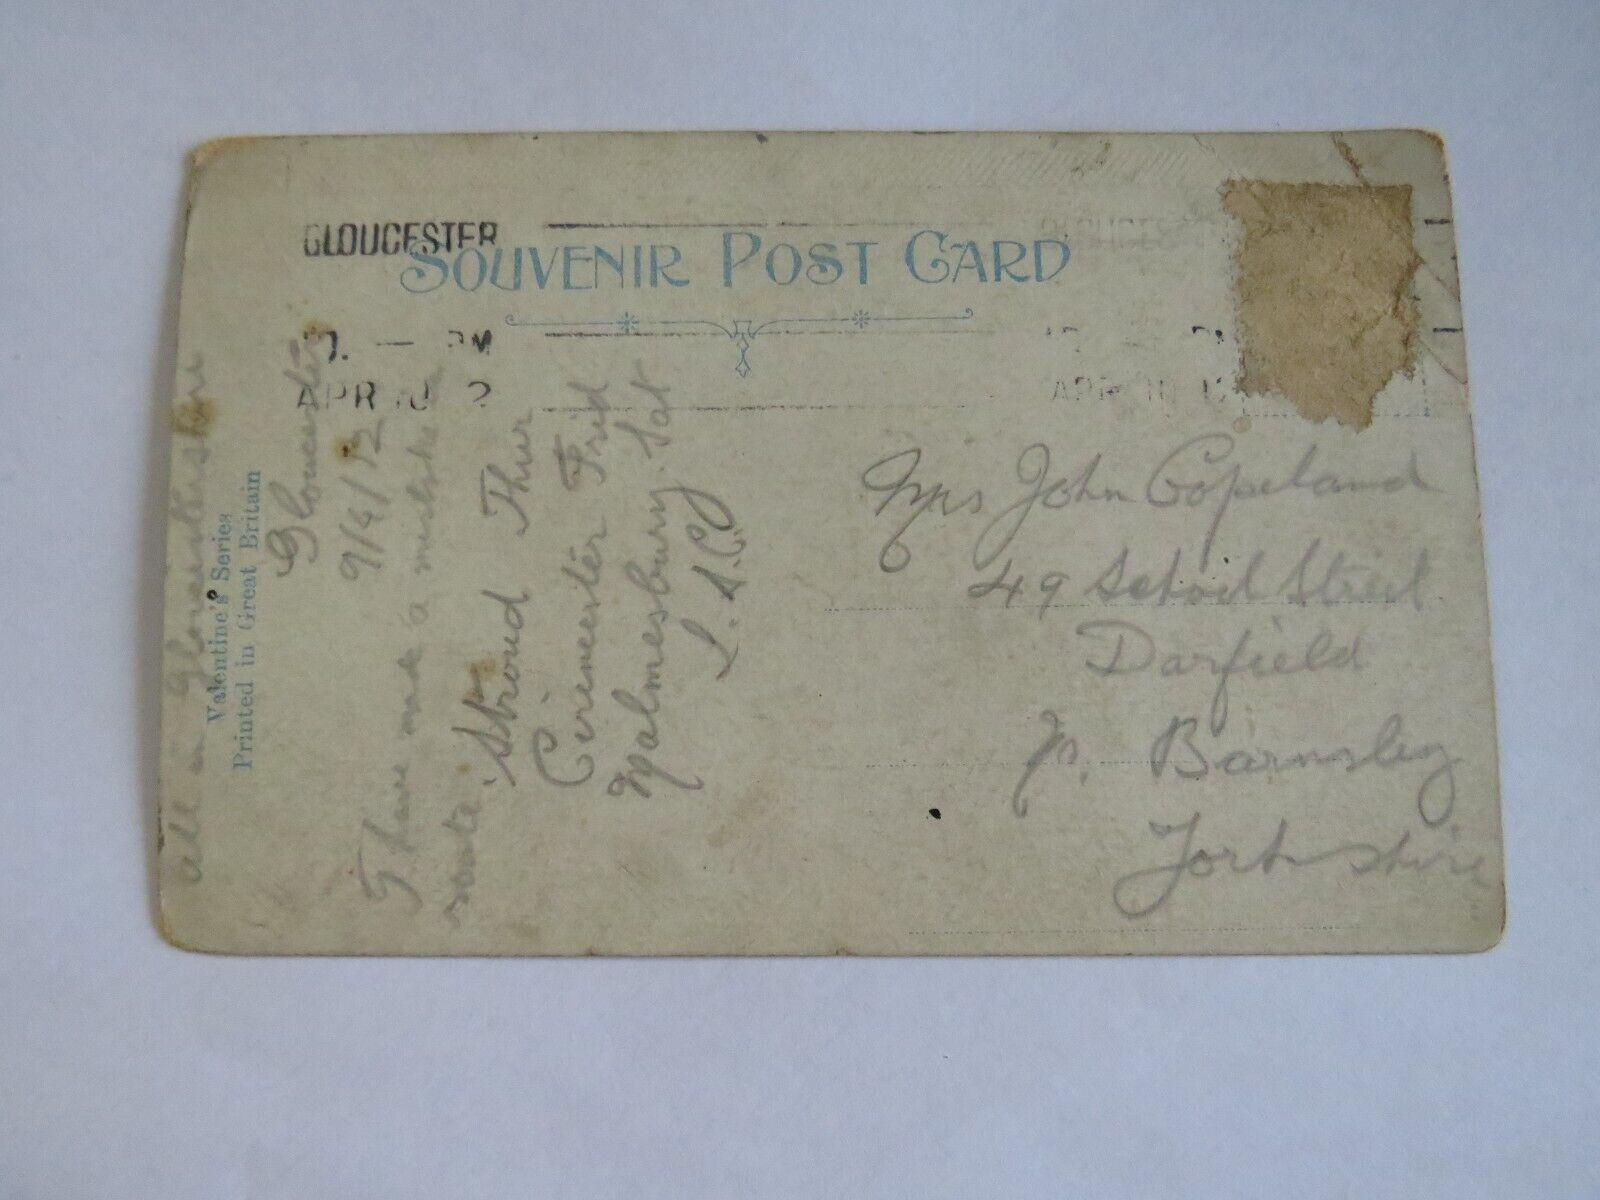 GLOUCESTER
SOUVENIR POST CARD
PM
APR 10 12
APR 10 12
Valentine's Series
Printed in Great Britain
Gloucester
9/4/12
I have made a mistake in
route
Stroud Thur
Cirencester Frid
Malmesbury Sat
J. S. C
all in Gloucestershire
Mrs John Copeland
49 School Street
Darfield
Nr. Barnsley
Yorkshire